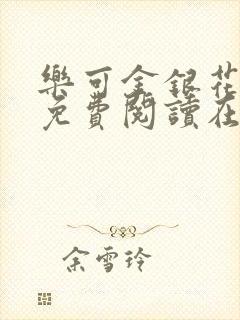 樂可金銀花
免費閱讀在
余雪玲